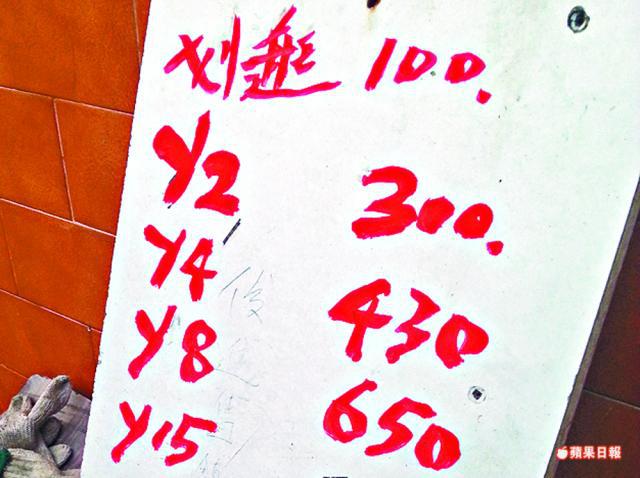 划艇 100.
Y2 300.
Y4
Y8 430
Y15 650
蘋果日報